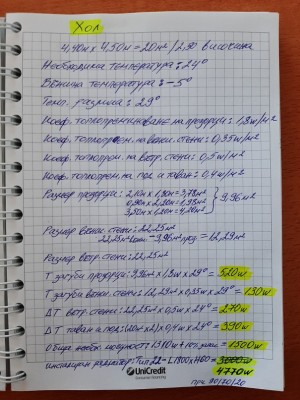 Хол
4,40м x 4,50м = 20м² / 2,50 височина
Необходима температура: 24°
Външна температура: -5°
Темп. разлика: 29°
Коеф. топлопреминаване на прозорци: 1,8w/м²
Коеф. топлопрем. на външ. стени: 0,35w/м²
Коеф. топлопрем. на вътр. стени: 0,5w/м²
Коеф. топлопрем. на под и таван: 0,4w/м²
Размер прозорци: 2,10м x 1,80м = 3,78м²
0,90м x 2,20м = 1,98м²
3,50м x 1,20м = 4,20м²
9,96м²
Размер външ. стени: 22,25м²
22,25м² - 9,96м² проз. = 12,29м²
Размер вътр. стени: 22,25м²
Т загуби прозорци: 9,96м² x 1,8w x 29° = 520w
Т загуби външ. стени: 12,29м² x 0,35w x 29° = 130w
ΔТ вътр. стени: 22,25м² x 0,5w x 24° = 270w
ΔТ таван и под: (20м² x2) x 0,4w x 24° = 390w
Обща необх. мощност: 1310w + 10% = 1500w
инсталиран радиатор: Тип 22 - L1800 x H60 =
4770w
UniCredit
при 90/70/20